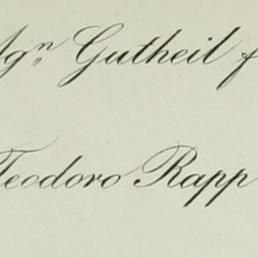 Agn Gutheil f
Teodoro Rapp